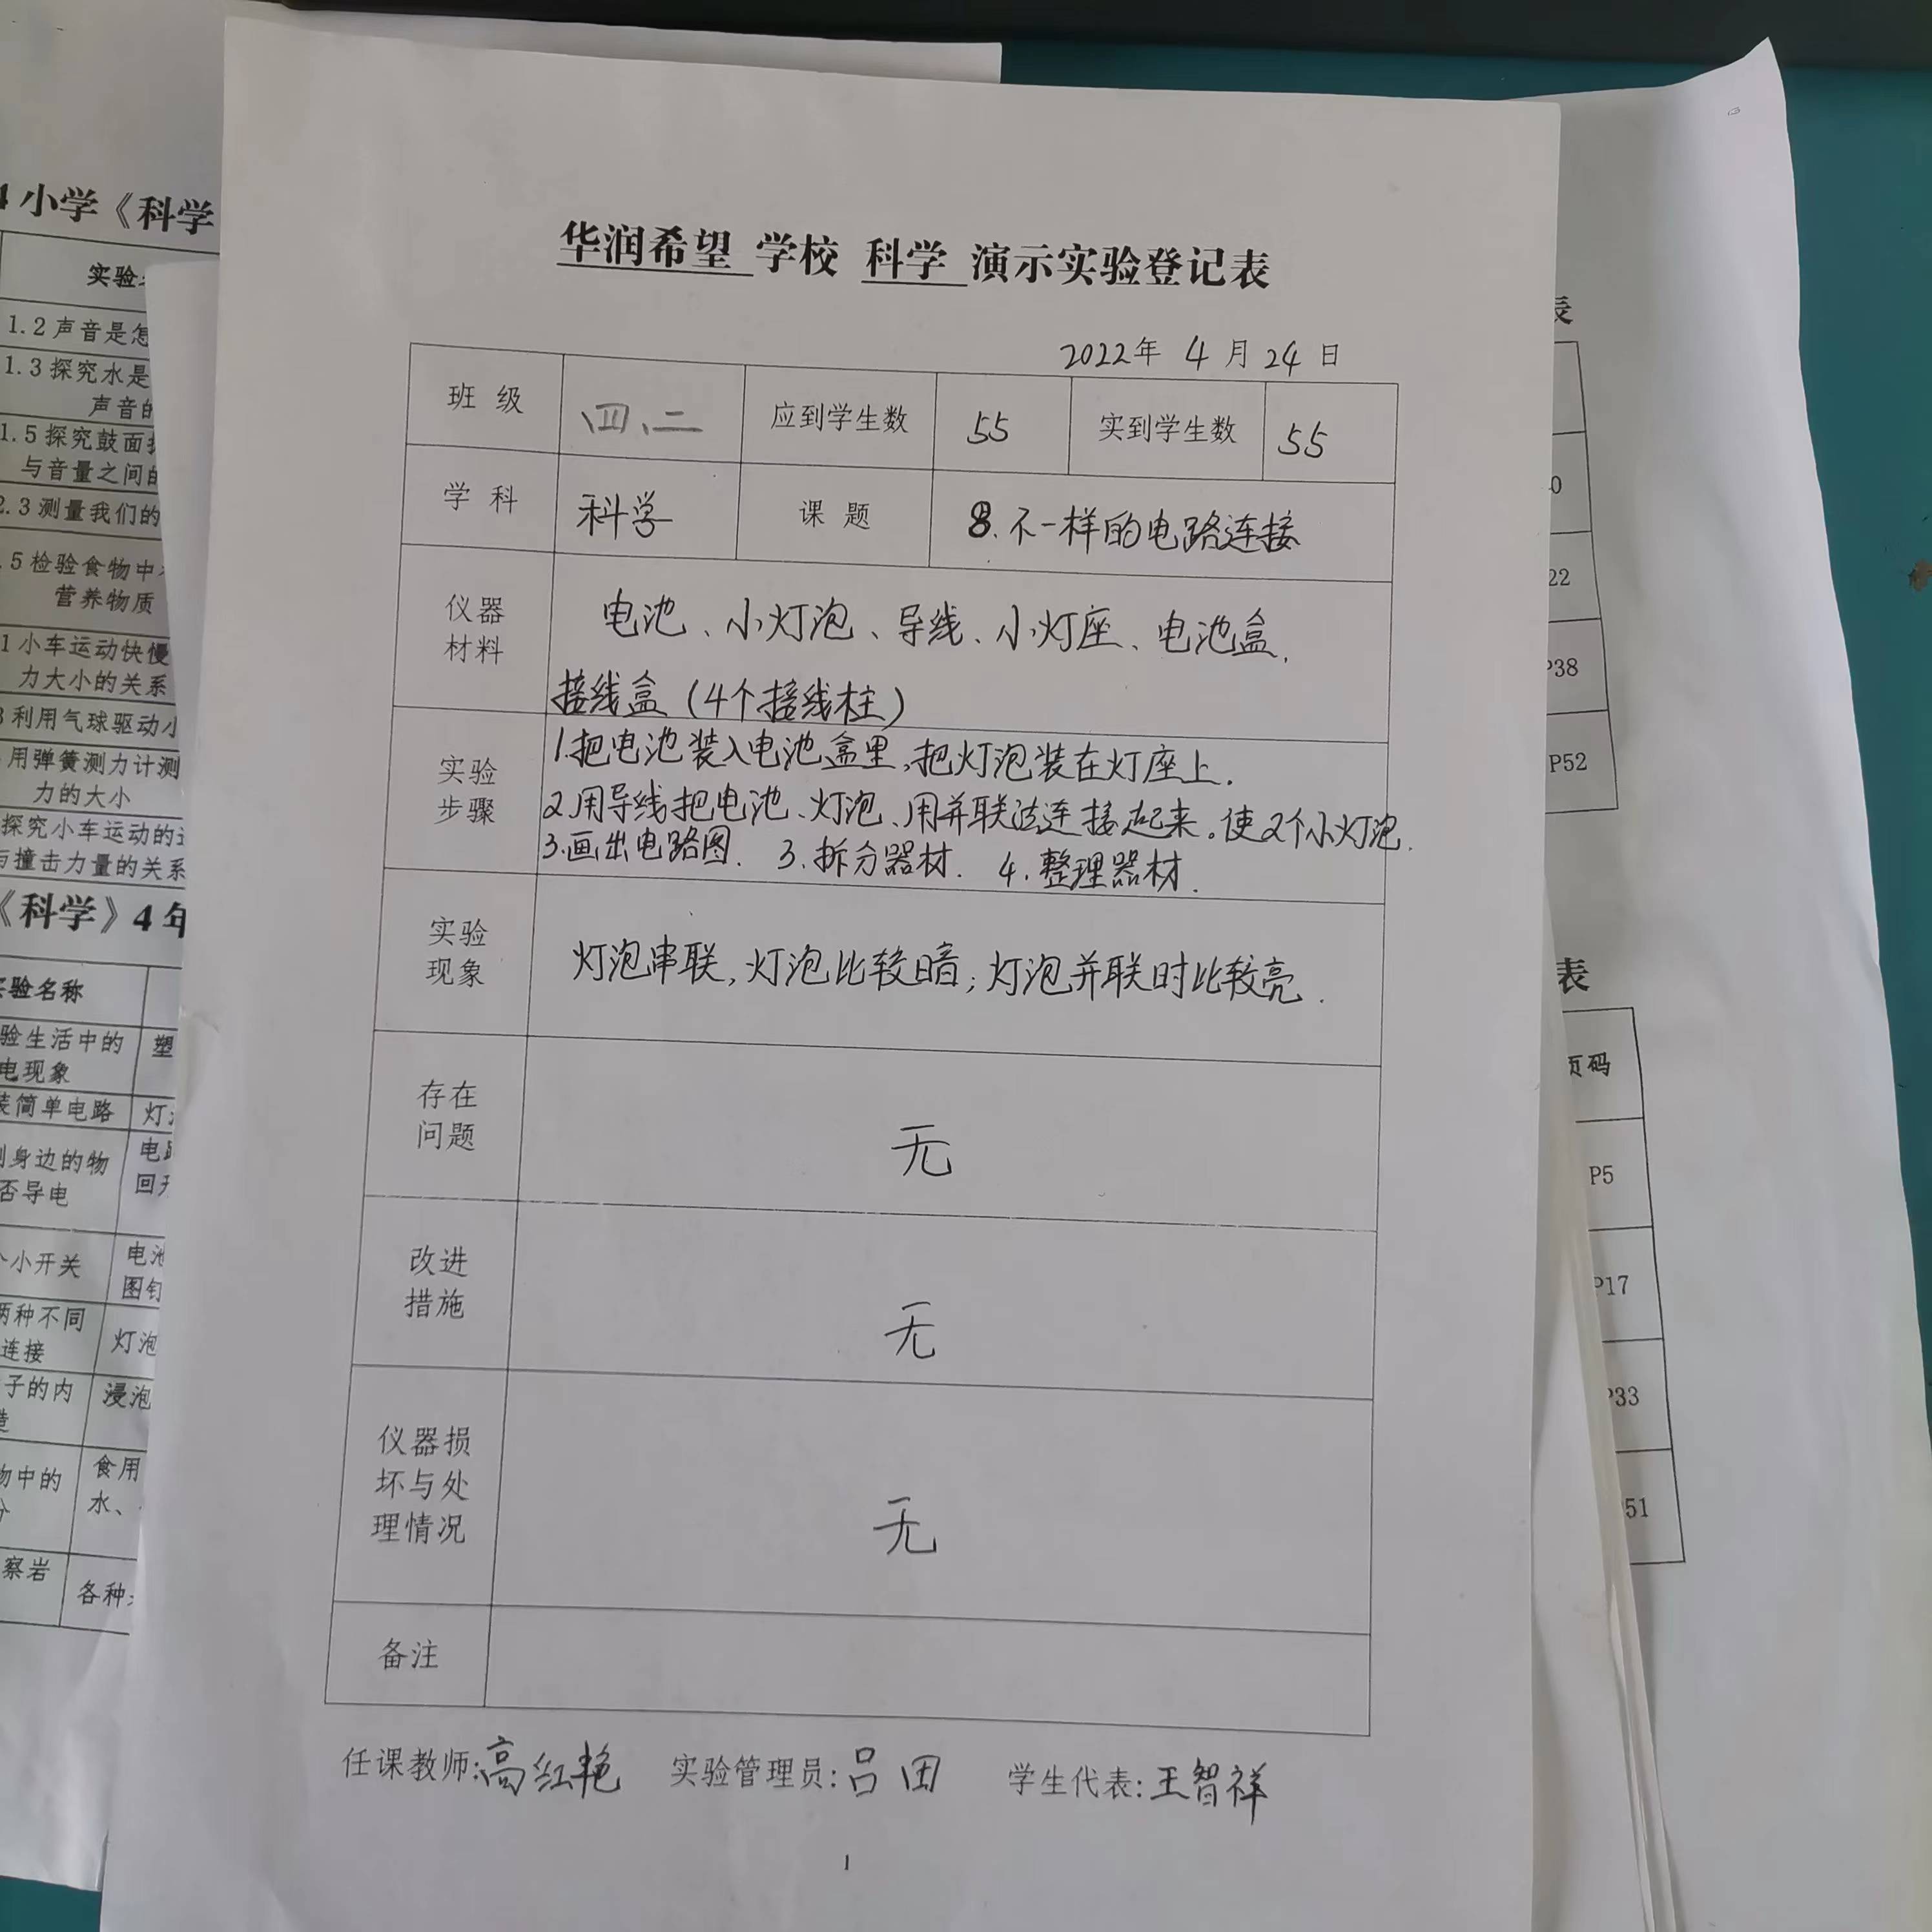 华润希望 学校 科学 演示实验登记表
2022年 4 月 24 日
班 级 四、二 应到学生数 55 实到学生数 55
学 科 科学 课 题 8.不一样的电路连接
仪器
材料
电池、小灯泡、导线、小灯座、电池盒、
接线盒(4个接线柱)
实验
步骤
1.把电池装入电池盒里,把灯泡装在灯座上.
2.用导线把电池、灯泡、用并联法连接起来。使2个小灯泡.
3.画出电路图. 3.拆分器材. 4.整理器材.
实验
现象
灯泡串联,灯泡比较暗;灯泡并联时比较亮.
存在
问题
无
改进
措施
无
仪器损
坏与处
理情况
无
备注
任课教师:高红艳 实验管理员:吕田 学生代表:王智祥
1
小学《科学
实验
1.2 声音是怎
1.3 探究水是
声音的
1.5 探究鼓面
与音量之间的
2.3 测量我们的
.5 检验食物中
营养物质
1 小车运动快慢
力大小的关系
3 利用气球驱动小
用弹簧测力计测
力的大小
探究小车运动的
与撞击力量的关系
《科学》4 年
实验名称
验生活中的
电现象
塑
装简单电路
灯
身边的物
否导电
电路
回
个小开关
电池
图钉
两种不同
连接
灯泡
子的内
浸泡
物中的
食用
水、
察岩
各种
表
0
22
P38
P52
表
页码
P5
P17
P33
51